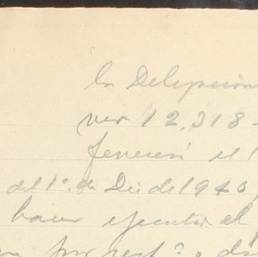 la Delegación
ver 12.318-
el
del 1º. de Dic. de 1940,
hacer ejecutar el
por